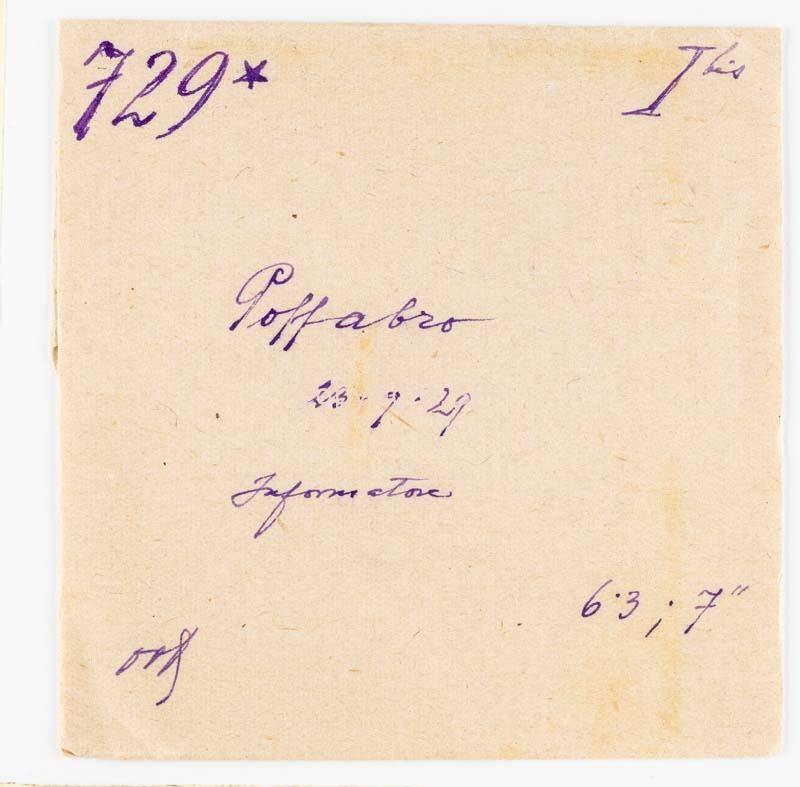 729* I bis
Poffabro
23.9.29
Informatore
6.3 ; 7"